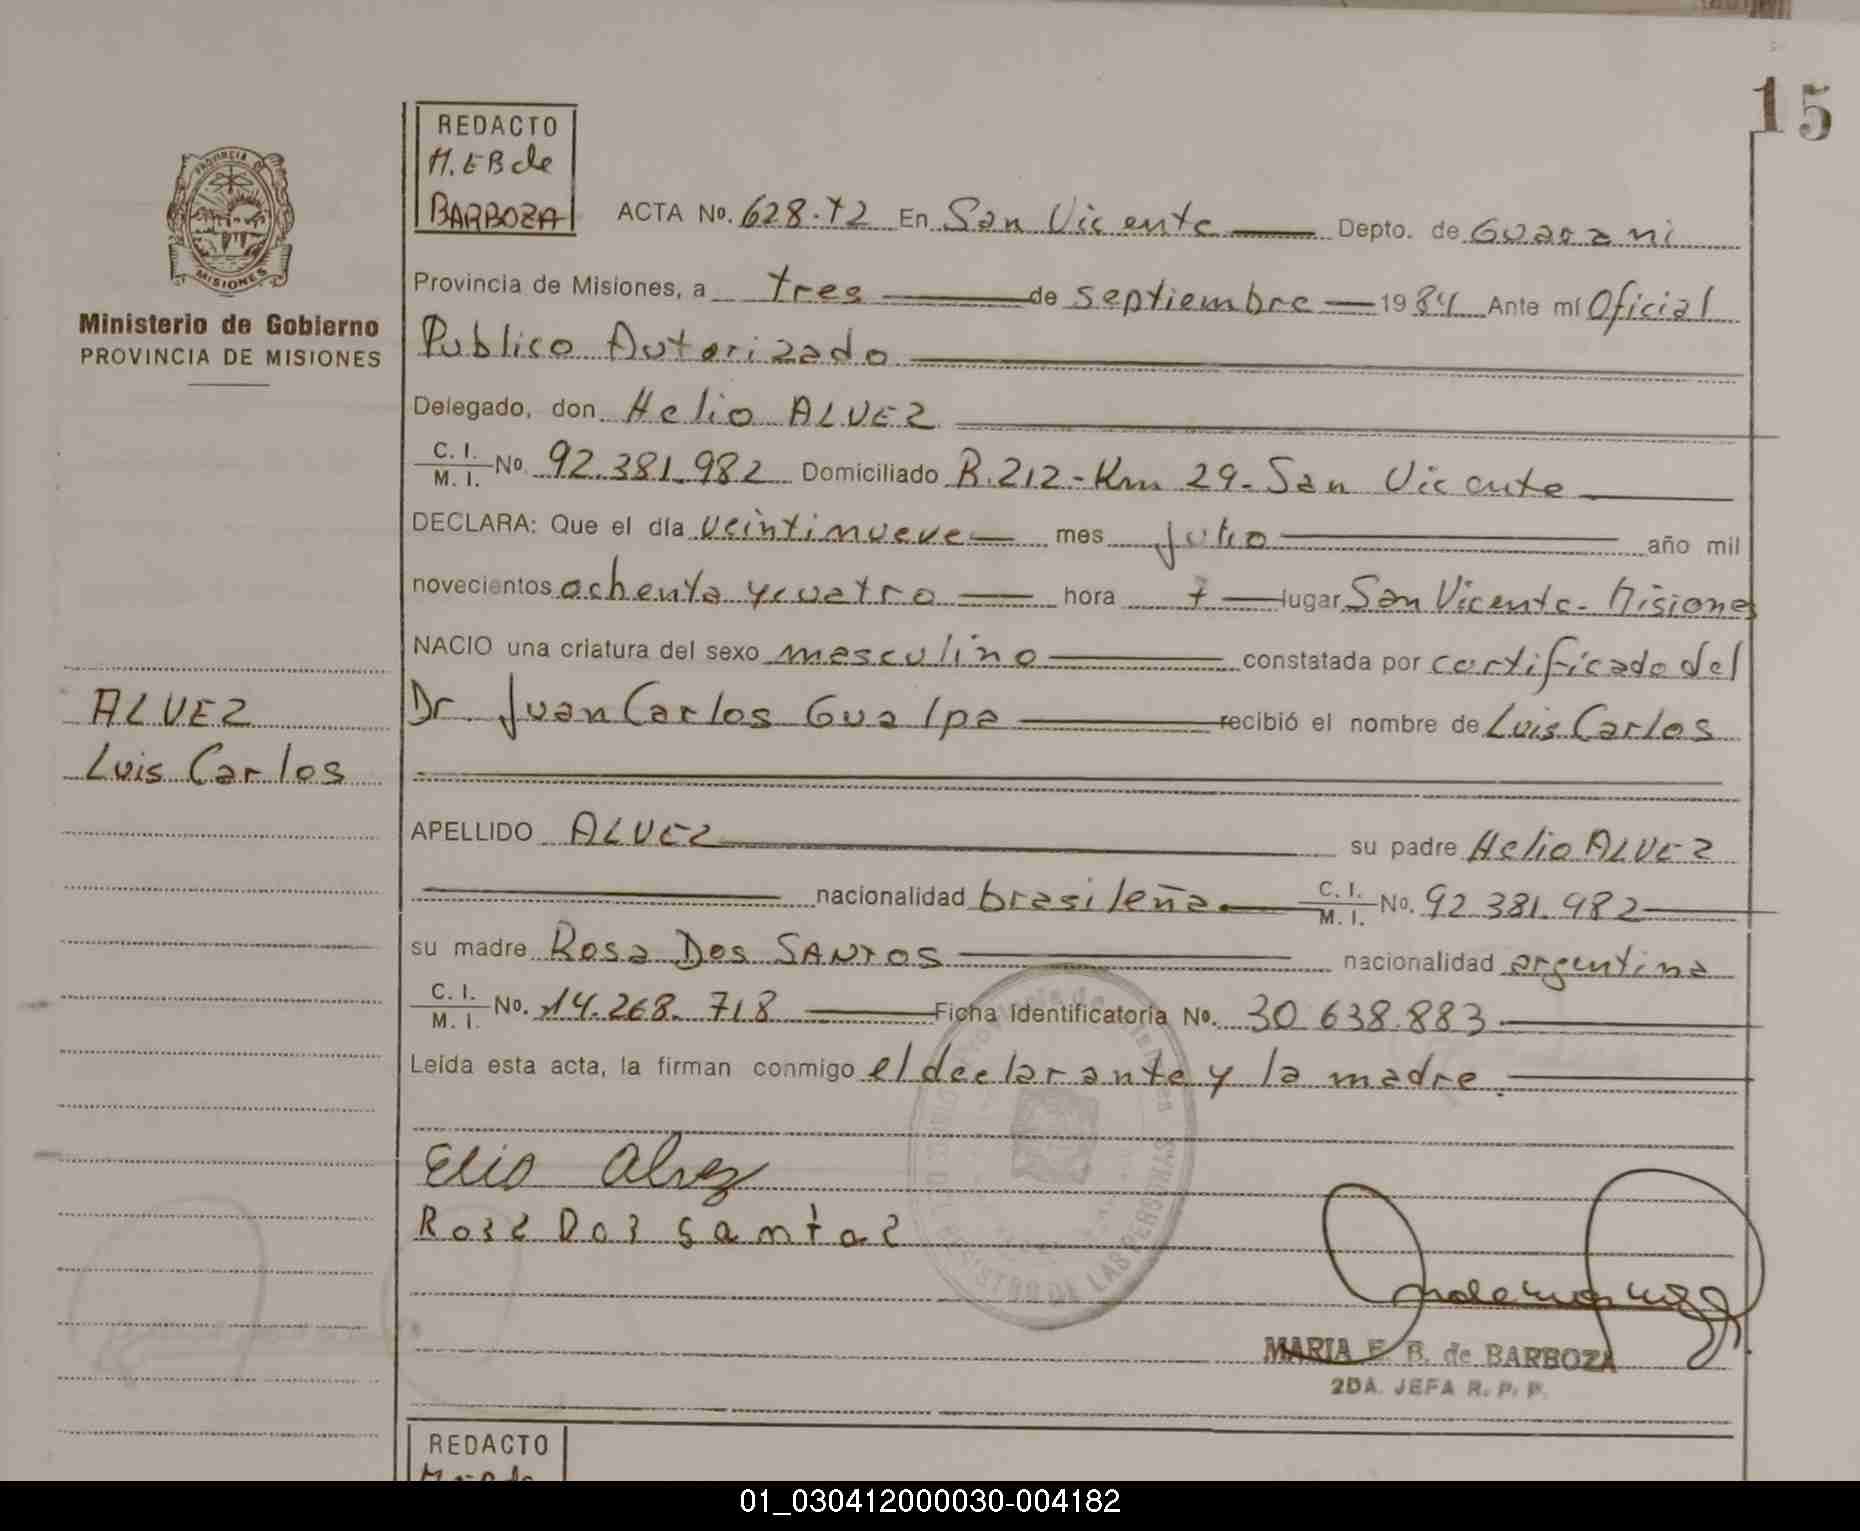 15
REDACTO
M. E B de
BARBOZA
PROVINCIA DE
MISIONES
Ministerio de Gobierno
PROVINCIA DE MISIONES
ACTA No. 628.T2 En San Vicente Depto. de Guarani
Provincia de Misiones, a tres de septiembre 1984 Ante mí Oficial
Publico Autorizado
Delegado, don Helio ALVEZ
C. I. / M. I. No. 92.381.982 Domiciliado R.212-Km 29-San Vicente
DECLARA: Que el día veintinueve mes julio año mil
novecientos ochenta y cuatro hora 7 lugar San Vicente-Misiones
NACIO una criatura del sexo masculino constatada por certificado del
Dr. Juan Carlos Gualpa recibió el nombre de Luis Carlos
ALVEZ
Luis Carlos
APELLIDO ALVEZ su padre Helio ALVEZ
nacionalidad brasileña C. I. / M. I. No. 92.381.982
su madre Rosa Dos SANTOS nacionalidad argentina
C. I. / M. I. No. 14.268.718 Ficha Identificatoria No. 30.638.883
Leída esta acta, la firman conmigo el declarante y la madre.
Elio Alvez
Rosa Dos Santos
REGISTRO DE LAS PERSONAS
MARIA E. B. de BARBOZA
2DA. JEFA R. P. P.
REDACTO
01_030412000030-004182